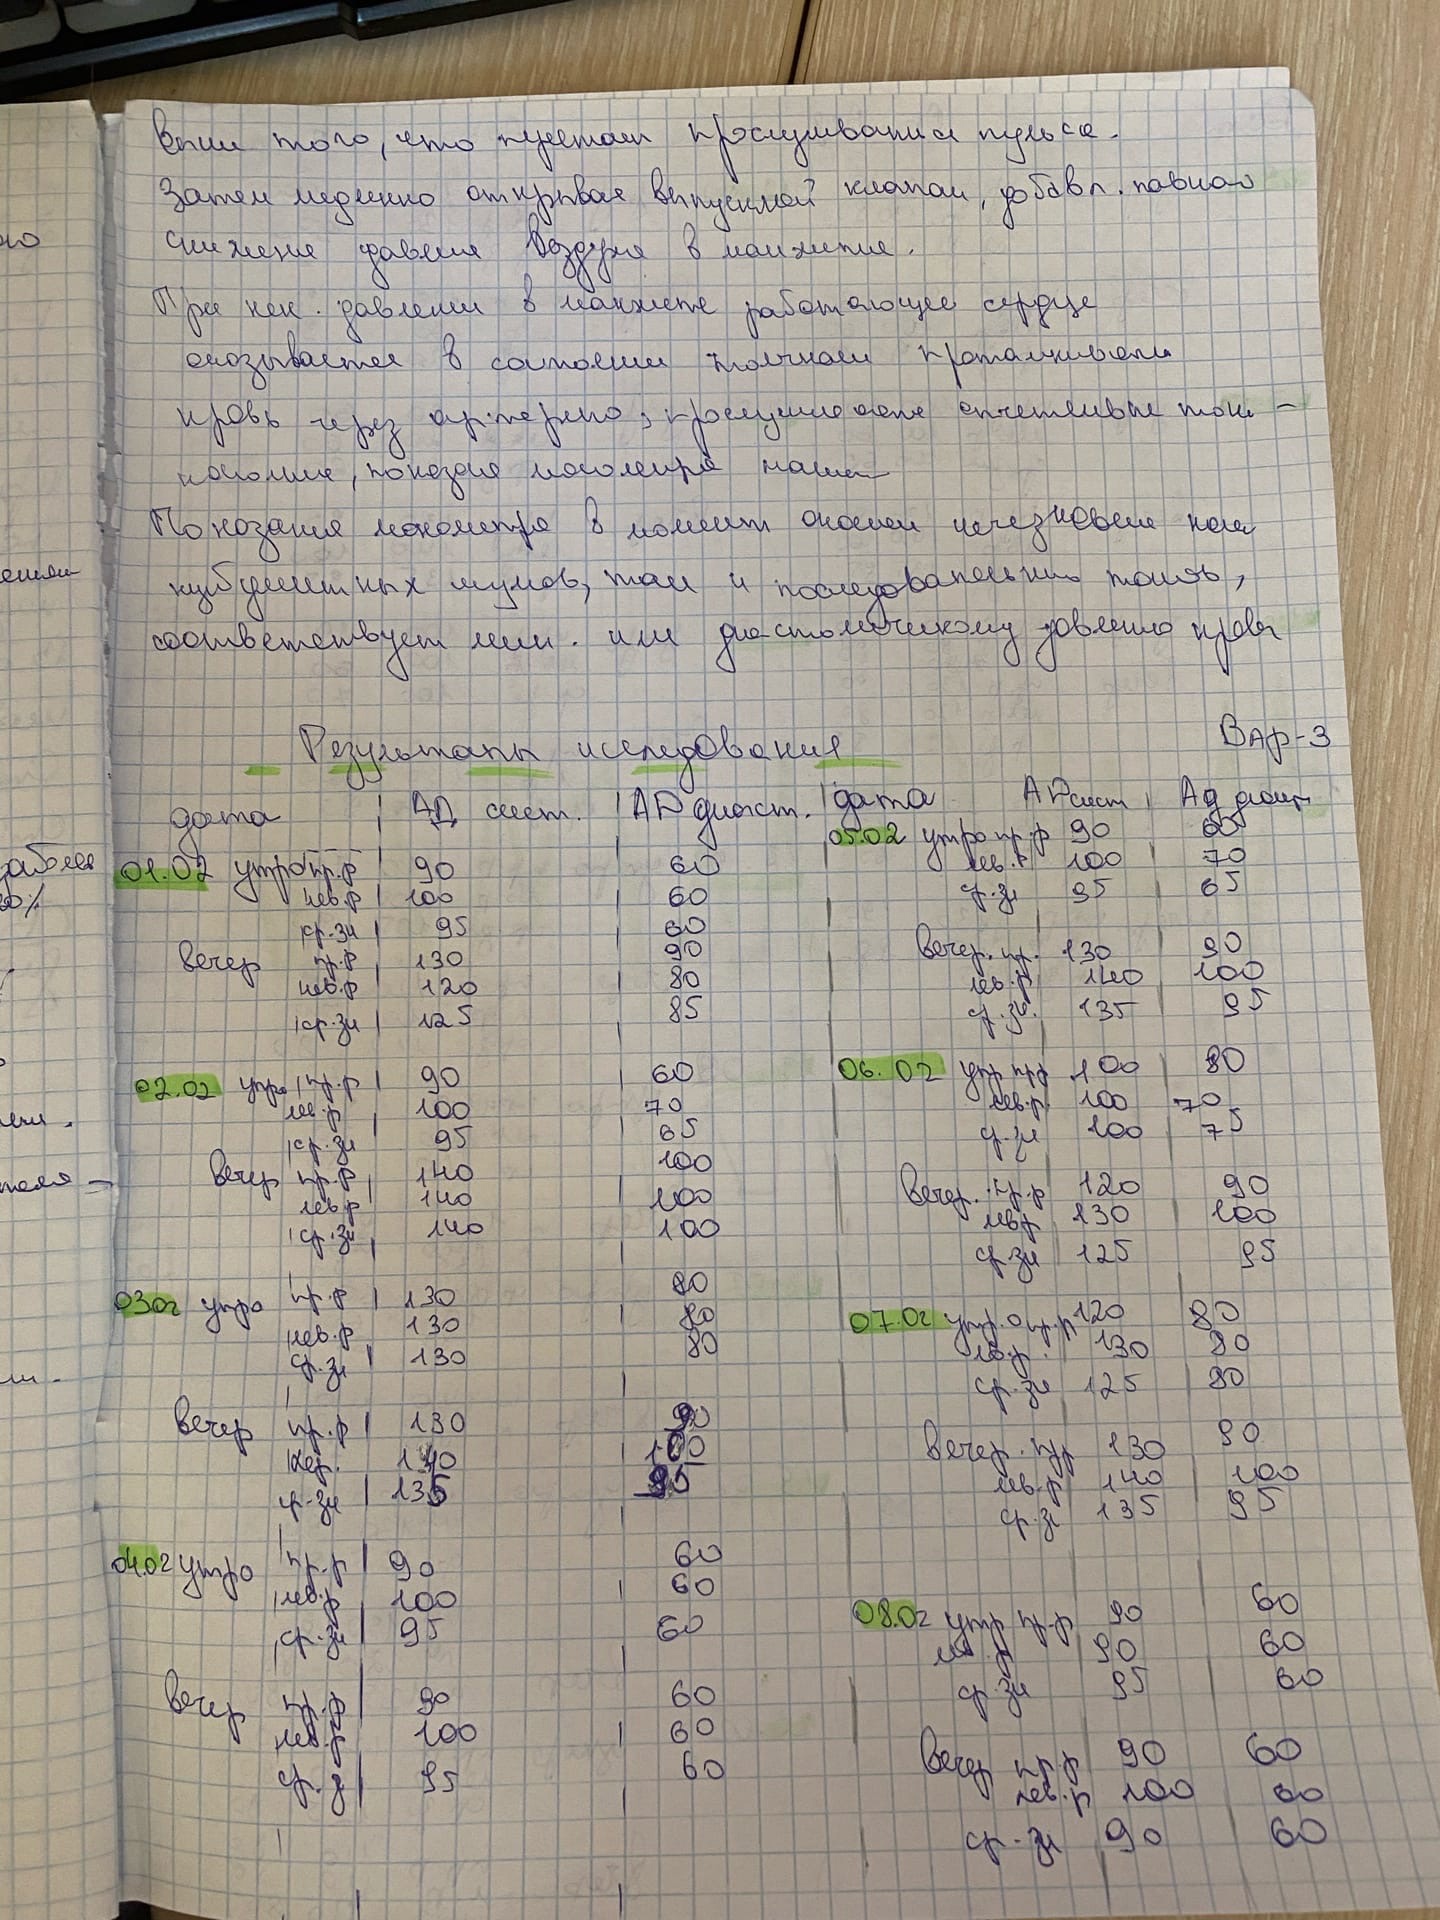 того, что прослушивания пульса.
Затем медленно открывая выпускной клапан, добив. плавно
снижение давления воздуха в манжетке.
При нек. давлении в манжете работающее сердце
оказывается в состоянии толчком проталкивать
кровь через артерию; отчетливые тоны -
показания манометра
Показания манометра в момент исчезновение как
шумов, так и последовательных тонов,
соответствует мин. или диастолическому давлению крови
Результаты исследования Вар-3
дата АД сист. АД диаст. дата АД сист Ад диаст
01.02 утро пр.р 90 60
лев.р 100 60
ср.зн 95 60
вечер пр.р 130 90
лев.р 120 80
ср.зн 125 85
02.02 утро пр.р 90 60
лев.р 100 70
ср.зн 95 65
вечер пр.р 140 100
лев.р 140 100
ср.зн 140 100
03.02 утро пр.р 130 80
лев.р 130 80
ср.зн 130 80
вечер пр.р 130 90
140 100
ср.зн 135 95
04.02 утро пр.р 90 60
лев.р 100 60
ср.зн 95 60
вечер пр.р 90 60
лев.р 100 60
ср.з 95 60
05.02 утро пр.р 90 60
лев.р 100 70
ср.зн 95 65
вечер. пр. 130 90
лев.р 140 100
ср.зн. 135 95
06.02 утр пр.р 100 80
лев.р. 100 70
ср.зн 100 75
вечер. пр.р 120 90
лев.р 130 100
ср.зн 125 95
07.02 утр.о пр.р 120 80
лев.р. 130 80
ср.зн 125 80
вечер. пр 130 90
лев.р 140 100
ср.зн 135 95
08.02 утр пр.р 90 60
лев.р 90 60
ср.зн 95 60
вечер пр.р 90 60
лев.р 100 60
ср.зн 90 60